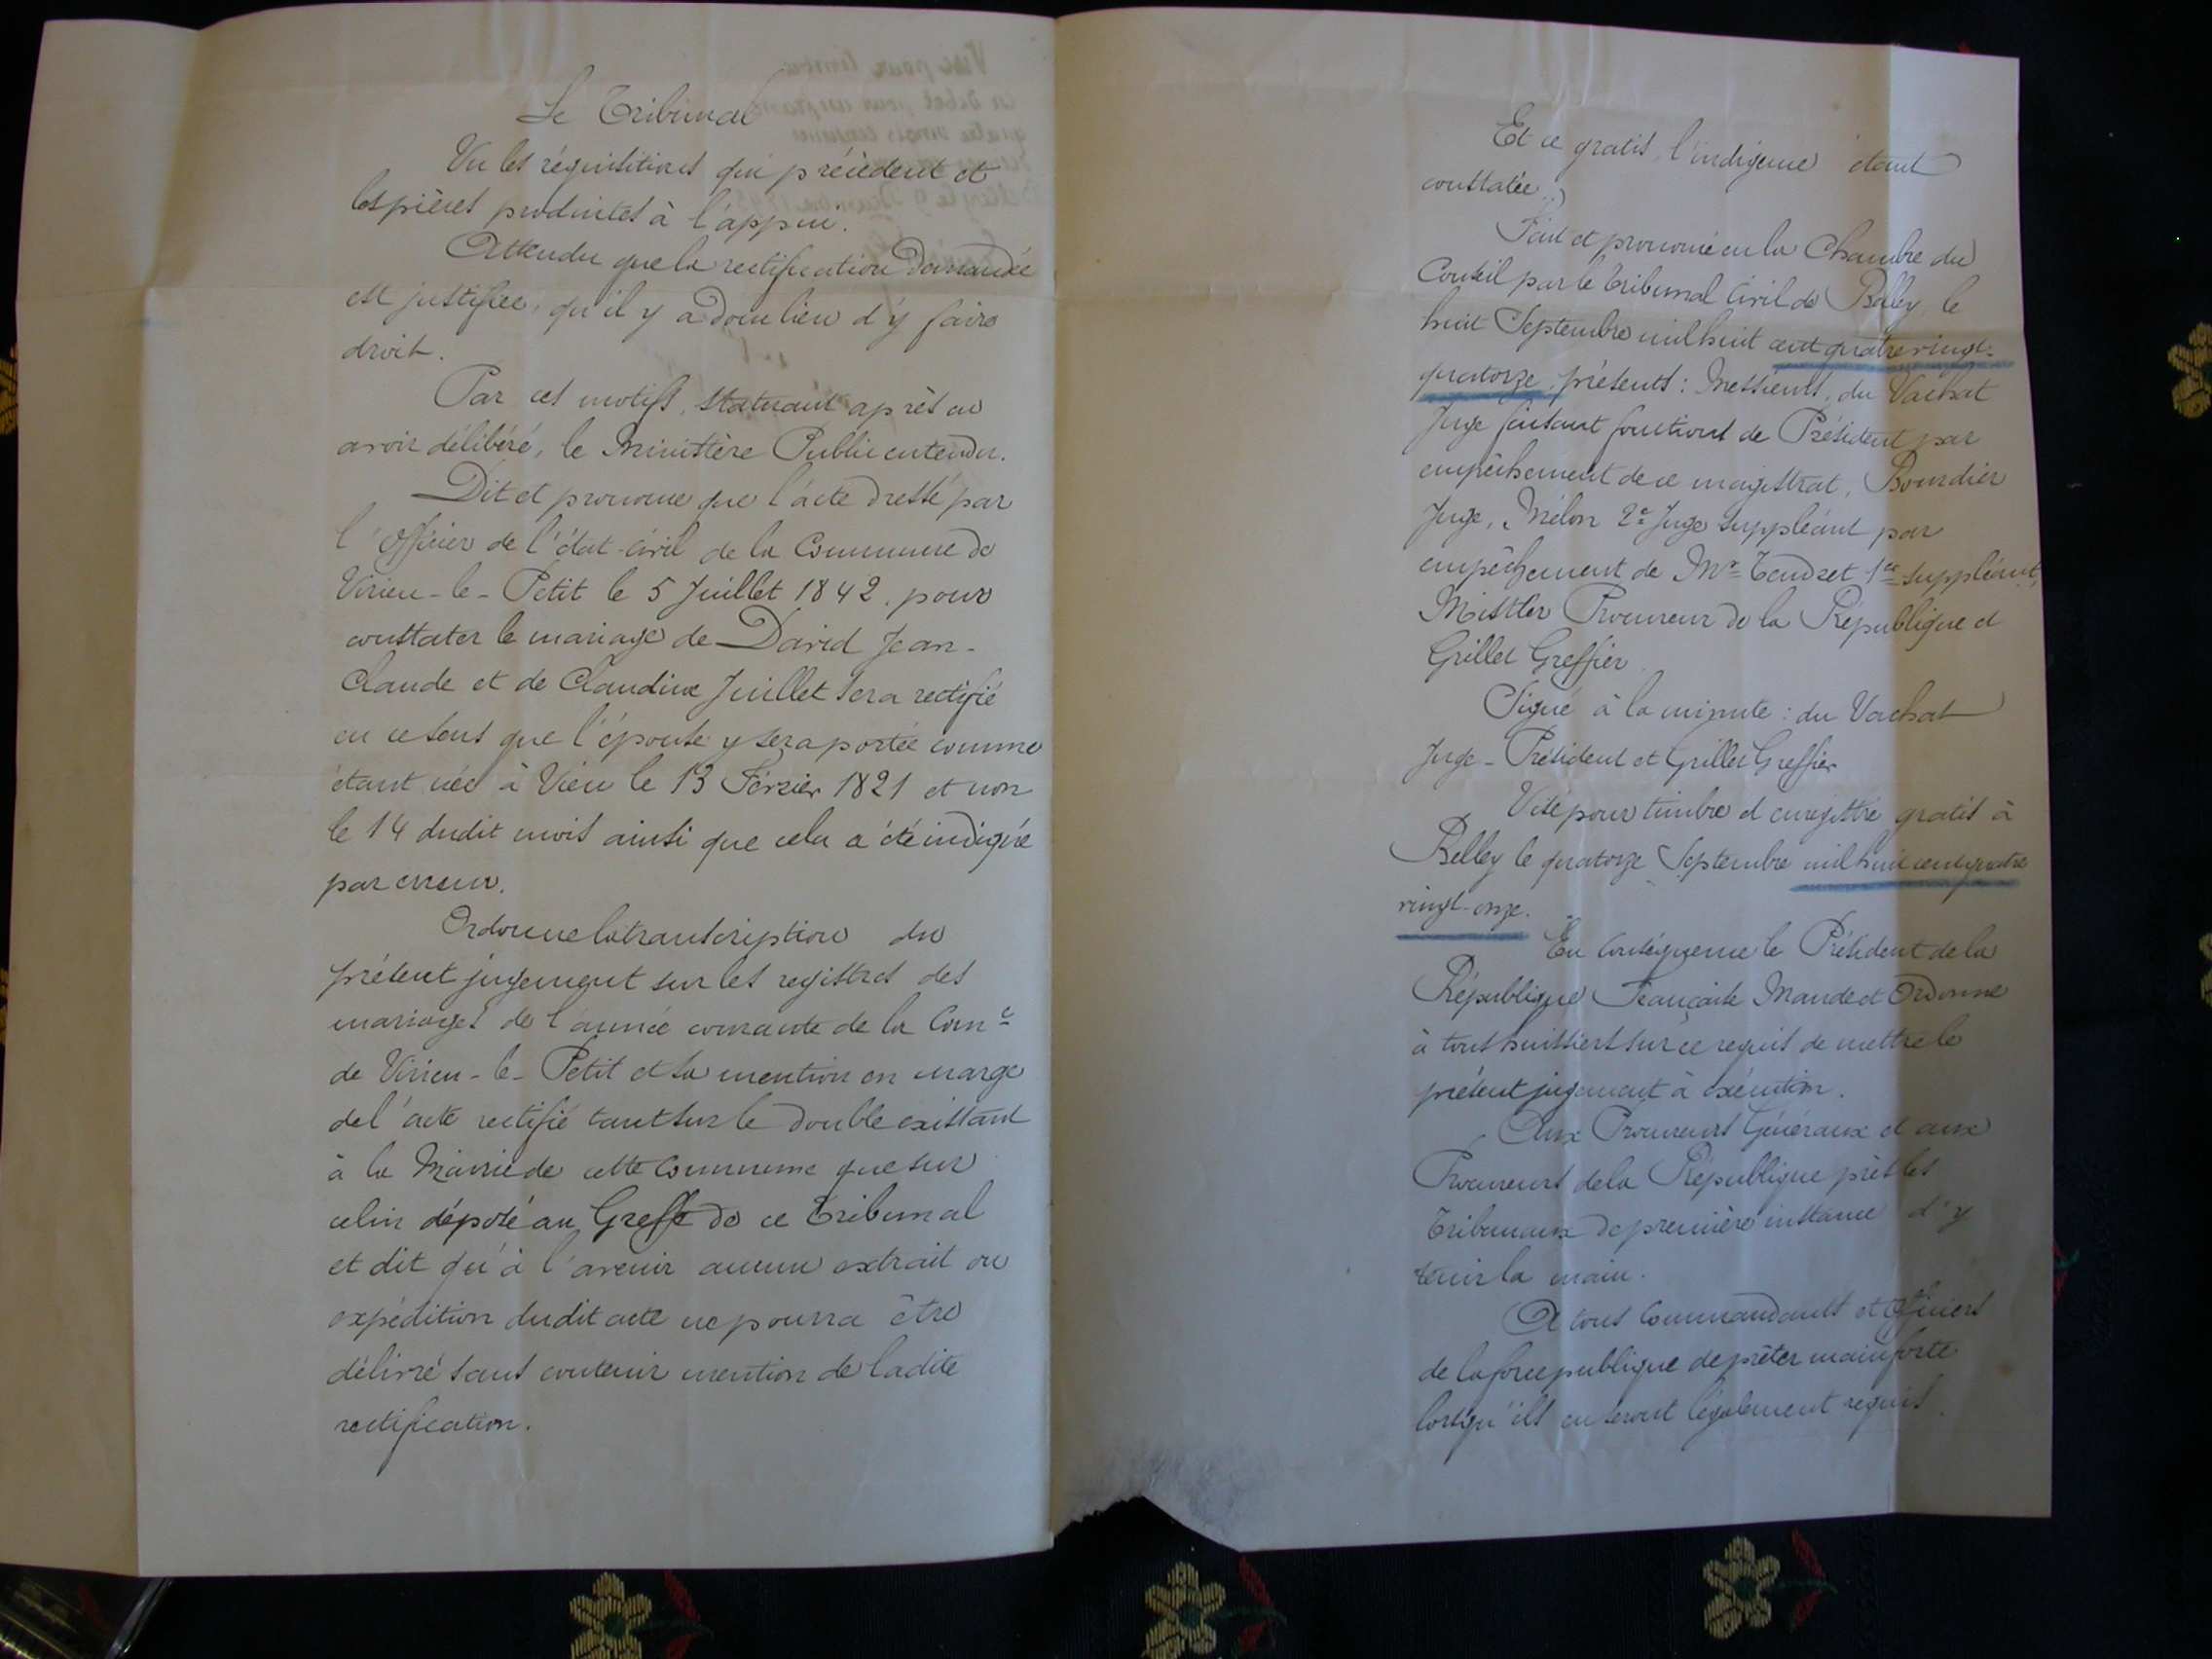 Le Tribunal
Vu les réquisitions qui précèdent et
les pièces produites à l'appui.
Attendu que la rectification demandée
est justifiée, qu'il y a donc lieu d'y faire
droit.
Par ces motifs, statuant après en
avoir délibéré, le Ministère Public entendu.
Dit et prononce que l'acte dressé par
l'officier de l'état-civil de la Commune de
Virieu-le-Petit le 5 Juillet 1842. pour
constater le mariage de David Jean-
Claude et de Claudine Juillet sera rectifié
en ce sens que l'épouse y sera portée comme
étant née à Vieu le 13 Février 1821 et non
le 14 dudit mois ainsi que cela a été indiqué
par erreur.
Ordonne la transcription du
présent jugement sur les registres des
mariages de l'année courante de la Com.e
de Virieu-le-Petit et sa mention en marge
de l'acte rectifié tant sur le double existant
à la Mairie de cette Commune que sur
celui déposé au Greffe de ce Tribunal
et dit qu'à l'avenir aucun extrait ou
expédition dudit acte ne pourra être
délivré sans contenir mention de ladite
rectification.
Et ce gratis, l'indigence étant
constatée.
Fait et prononcé en la Chambre du
Conseil par le Tribunal Civil de Belley, le
huit Septembre mil huit cent quatre vingt-
quatorze, présents: Messieurs, du Vachat
Juge faisant fonctions de Président par
empêchement de ce magistrat, Bourdier
Juge, Mélon 2e Juge suppléant par
empêchement de Mr Tendret 1er suppléant,
Mistler Procureur de la République et
Grillet Greffier.
Signé à la minute: du Vachat
Juge-Président et Grillet Greffier
Visé pour timbre et enregistré gratis à
Belley le quatorze Septembre mil huit cent quatre
vingt-onze.
En conséquence le Président de la
République Française Mande et Ordonne
à tous huissiers sur ce requis de mettre le
présent jugement à exécution.
Aux Procureurs Généraux et aux
Procureurs de la République près les
Tribunaux de première instance d'y
tenir la main.
A tous Commandants et Officiers
de la force publique de prêter main forte
lorsqu'ils en seront légalement requis.